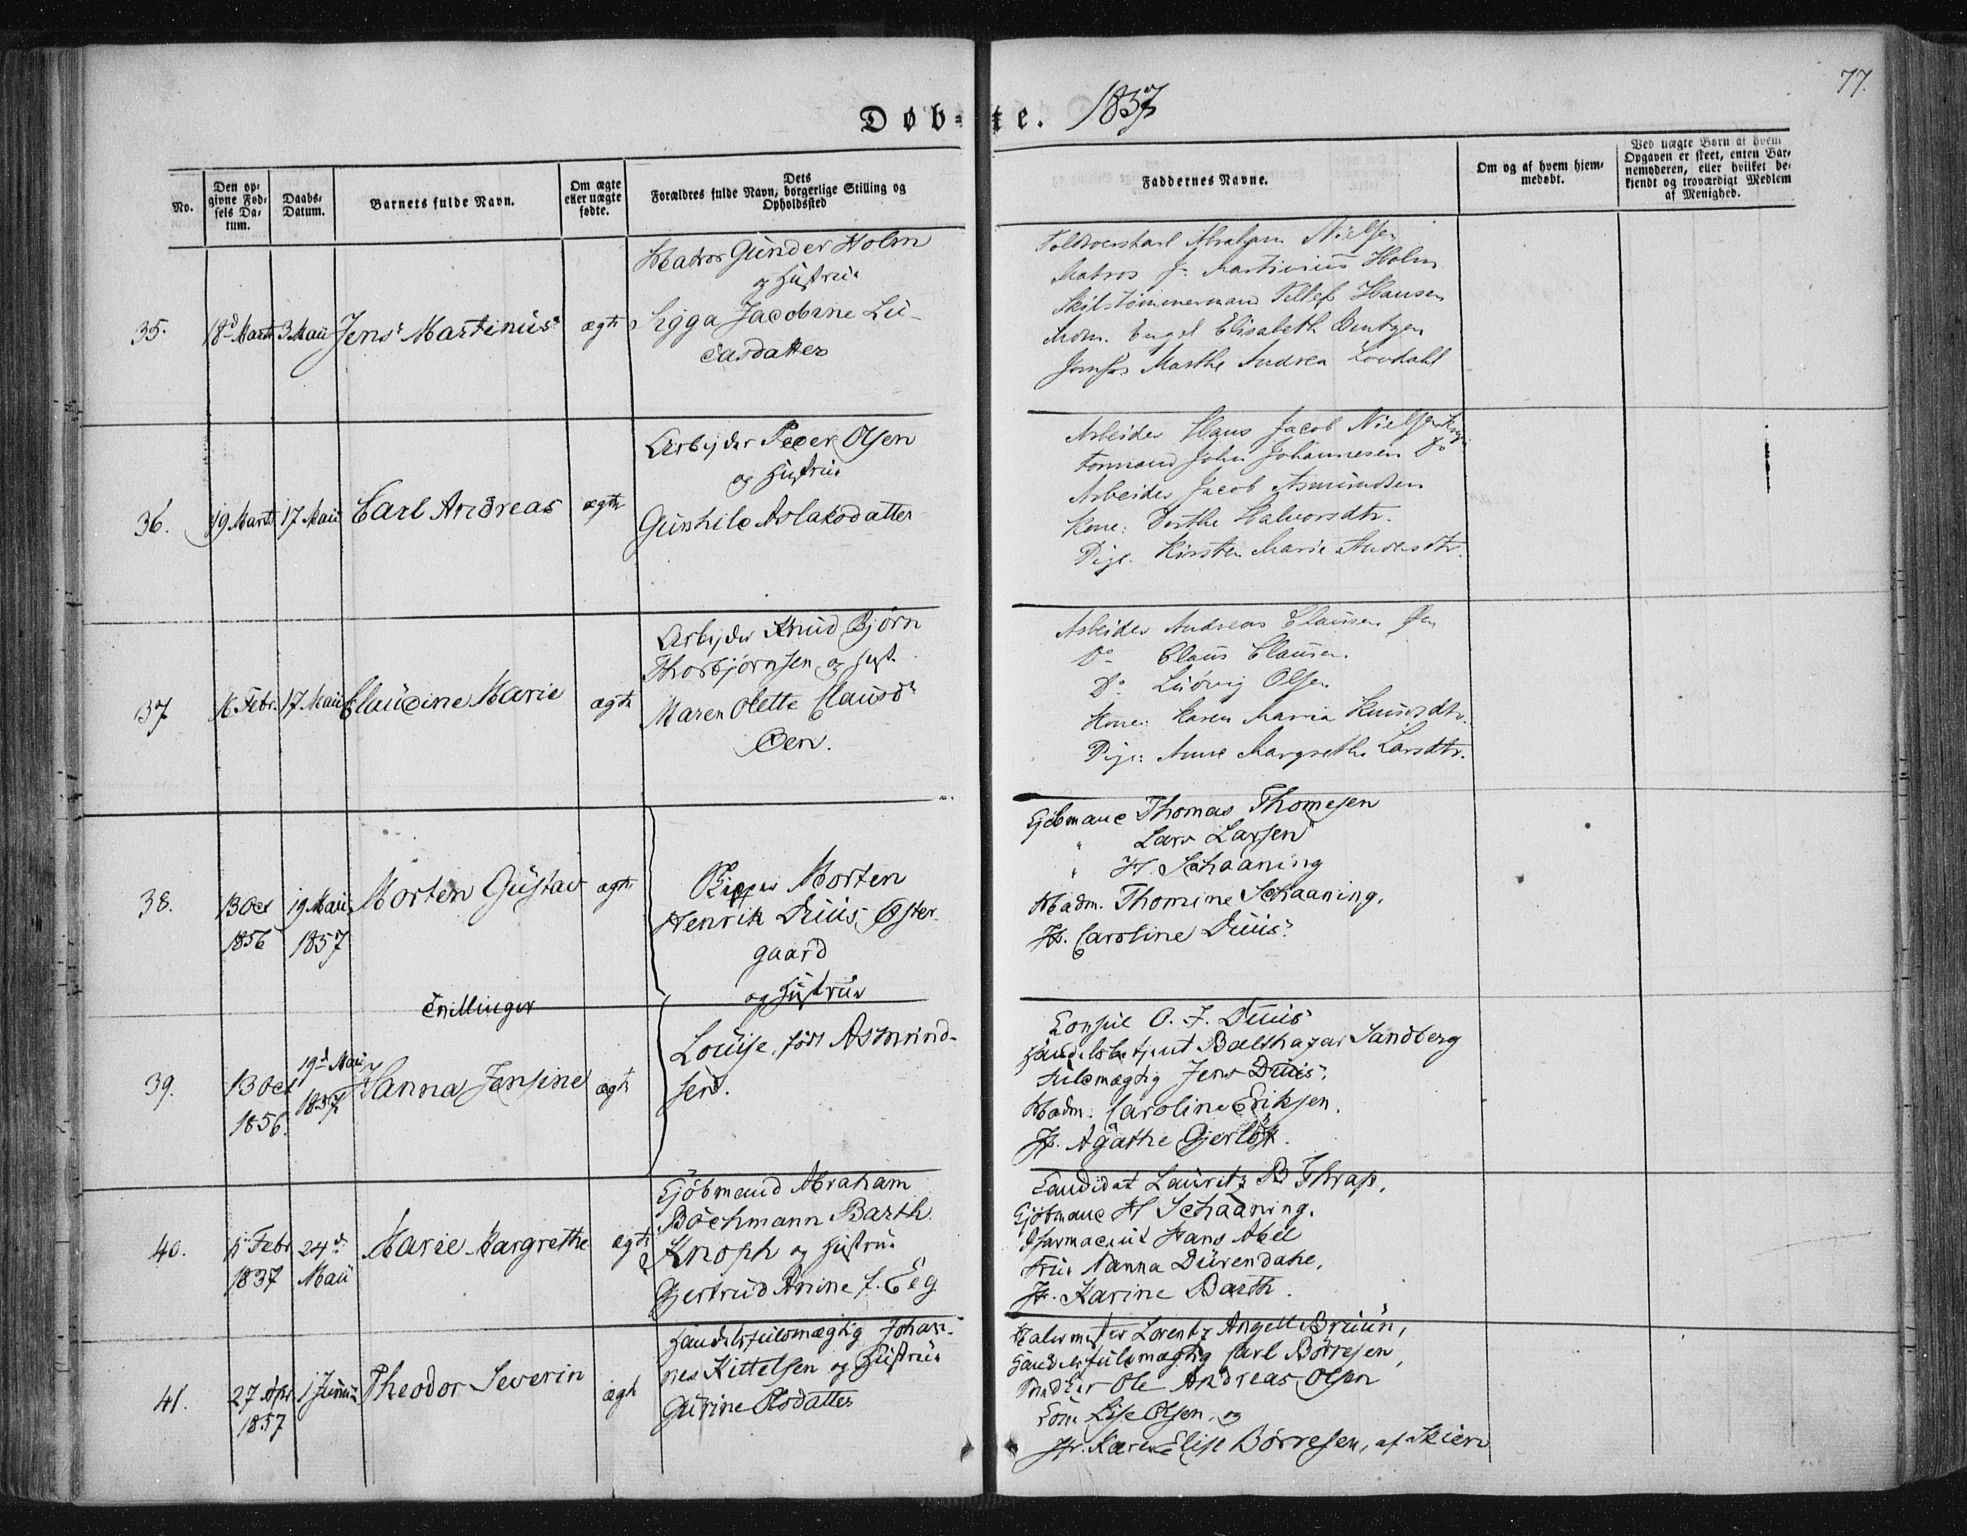 77.
Døb-te. 1837
No.
Den op-
givne Fød-
sels Da-
tum.
Daabs-
Datum.
Barnets fulde Navn.
Om ægte
eller uægte
fødte.
Dets
Forældres fulde Navn, borgerlige Stilling og
Opholdssted
Faddernes Navne.
Om og af hvem hjem-
medøbt.
Ved uægte Børn af hvem
Opgaven er skeet, enten Bar-
nemoderen, eller hvilket be-
kjendt og troværdigt Medlem
af Menighed.
35.
18d Marts
3 Maii
Jens Martinus
ægte
Matros Gunder Holm
og Hustrue
Sigga Jacobine Lu-
casdatter
Abraham Nielsen
Matros J. Martinius Holm
Skibstømmermand Hansen
Mdm. Engel Elisabeth Bentzen
Jomfr Marthe Andrea Lovdahl
36.
19 Marts
17 Maii
Carl Andreas
ægte
Arbejder Peder Olsen
og Hustrue
Gunhild Aslaksdatter
Arbeider Hans Jacob Nielsen
Formand John Johannesen Do
Arbeider Jacob Asmundsen
Kone: Dorthe Halvorsdtr.
Pige. Kirsten Marie Andersdtr.
37
16 Febr.
17 Maii
Claudine Marie
ægte
Arbejder Knud Bjørn
Thorbjørnsen og Hust.
Maren Olette Clausd
Øen.
Arbeider Andreas Clausen Øen
Do Claus Clausen.
Do Ludvig Olsen
Kone: Karen Maria Knudsdtr.
Pige: Anne Margrethe Larsdtr.
38.
13 Oct
1856
19 Maii
1857
Morten Gustav
ægte
Skipper Morten
Henrik Duus Øster-
gaard
og Hustrue
Kjøbmand Thomas Thomesen
" Lars Larsen
" H. Schaaning
Madm. Thomine Schaaning.
Jfr. Caroline Duus.
Tvillinger
39.
13 Oct
1856.
19d Maii
1857
Hanna Jensine
ægte
Louise, født Asmund-
sen.
Consul O. J. Duus
Handelsbetjent Balthazar Sandberg
Fuldmægtig Jens Duus.
Madm. Caroline Eriksen.
Jfr. Agathe Gjerløst.
40.
15 Febr
1837
24d
Maii
Marie Margrethe
ægte
Kjøbmand Abraham
Bochmann Barth
Knoph og Hustrue
Gjertrud Anine f. Eeg
Candidat Lauritz B Thrap,
Kjøbmand H Schaaning.
Pharmaceut Hans Abel
Frue Nanna Dürendahl,
Jfr. Karine Barth.
41.
27 Apr
1857
1 Junii
Theodor Severin
ægte
Handelsfuldmægtig Johan-
nes Kittelsen og Hustrue
Gurine Olsdatter
Malermester Lorentz Angell Bruun,
Handelsfuldmægtig Carl Børresen,
Ole Andreas Olsen
Kone Lise Olsen, og
Jfr. Karen Elise Børresen, af Skien